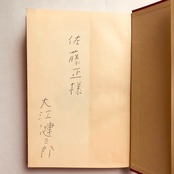 佐藤正様
大江健三郎